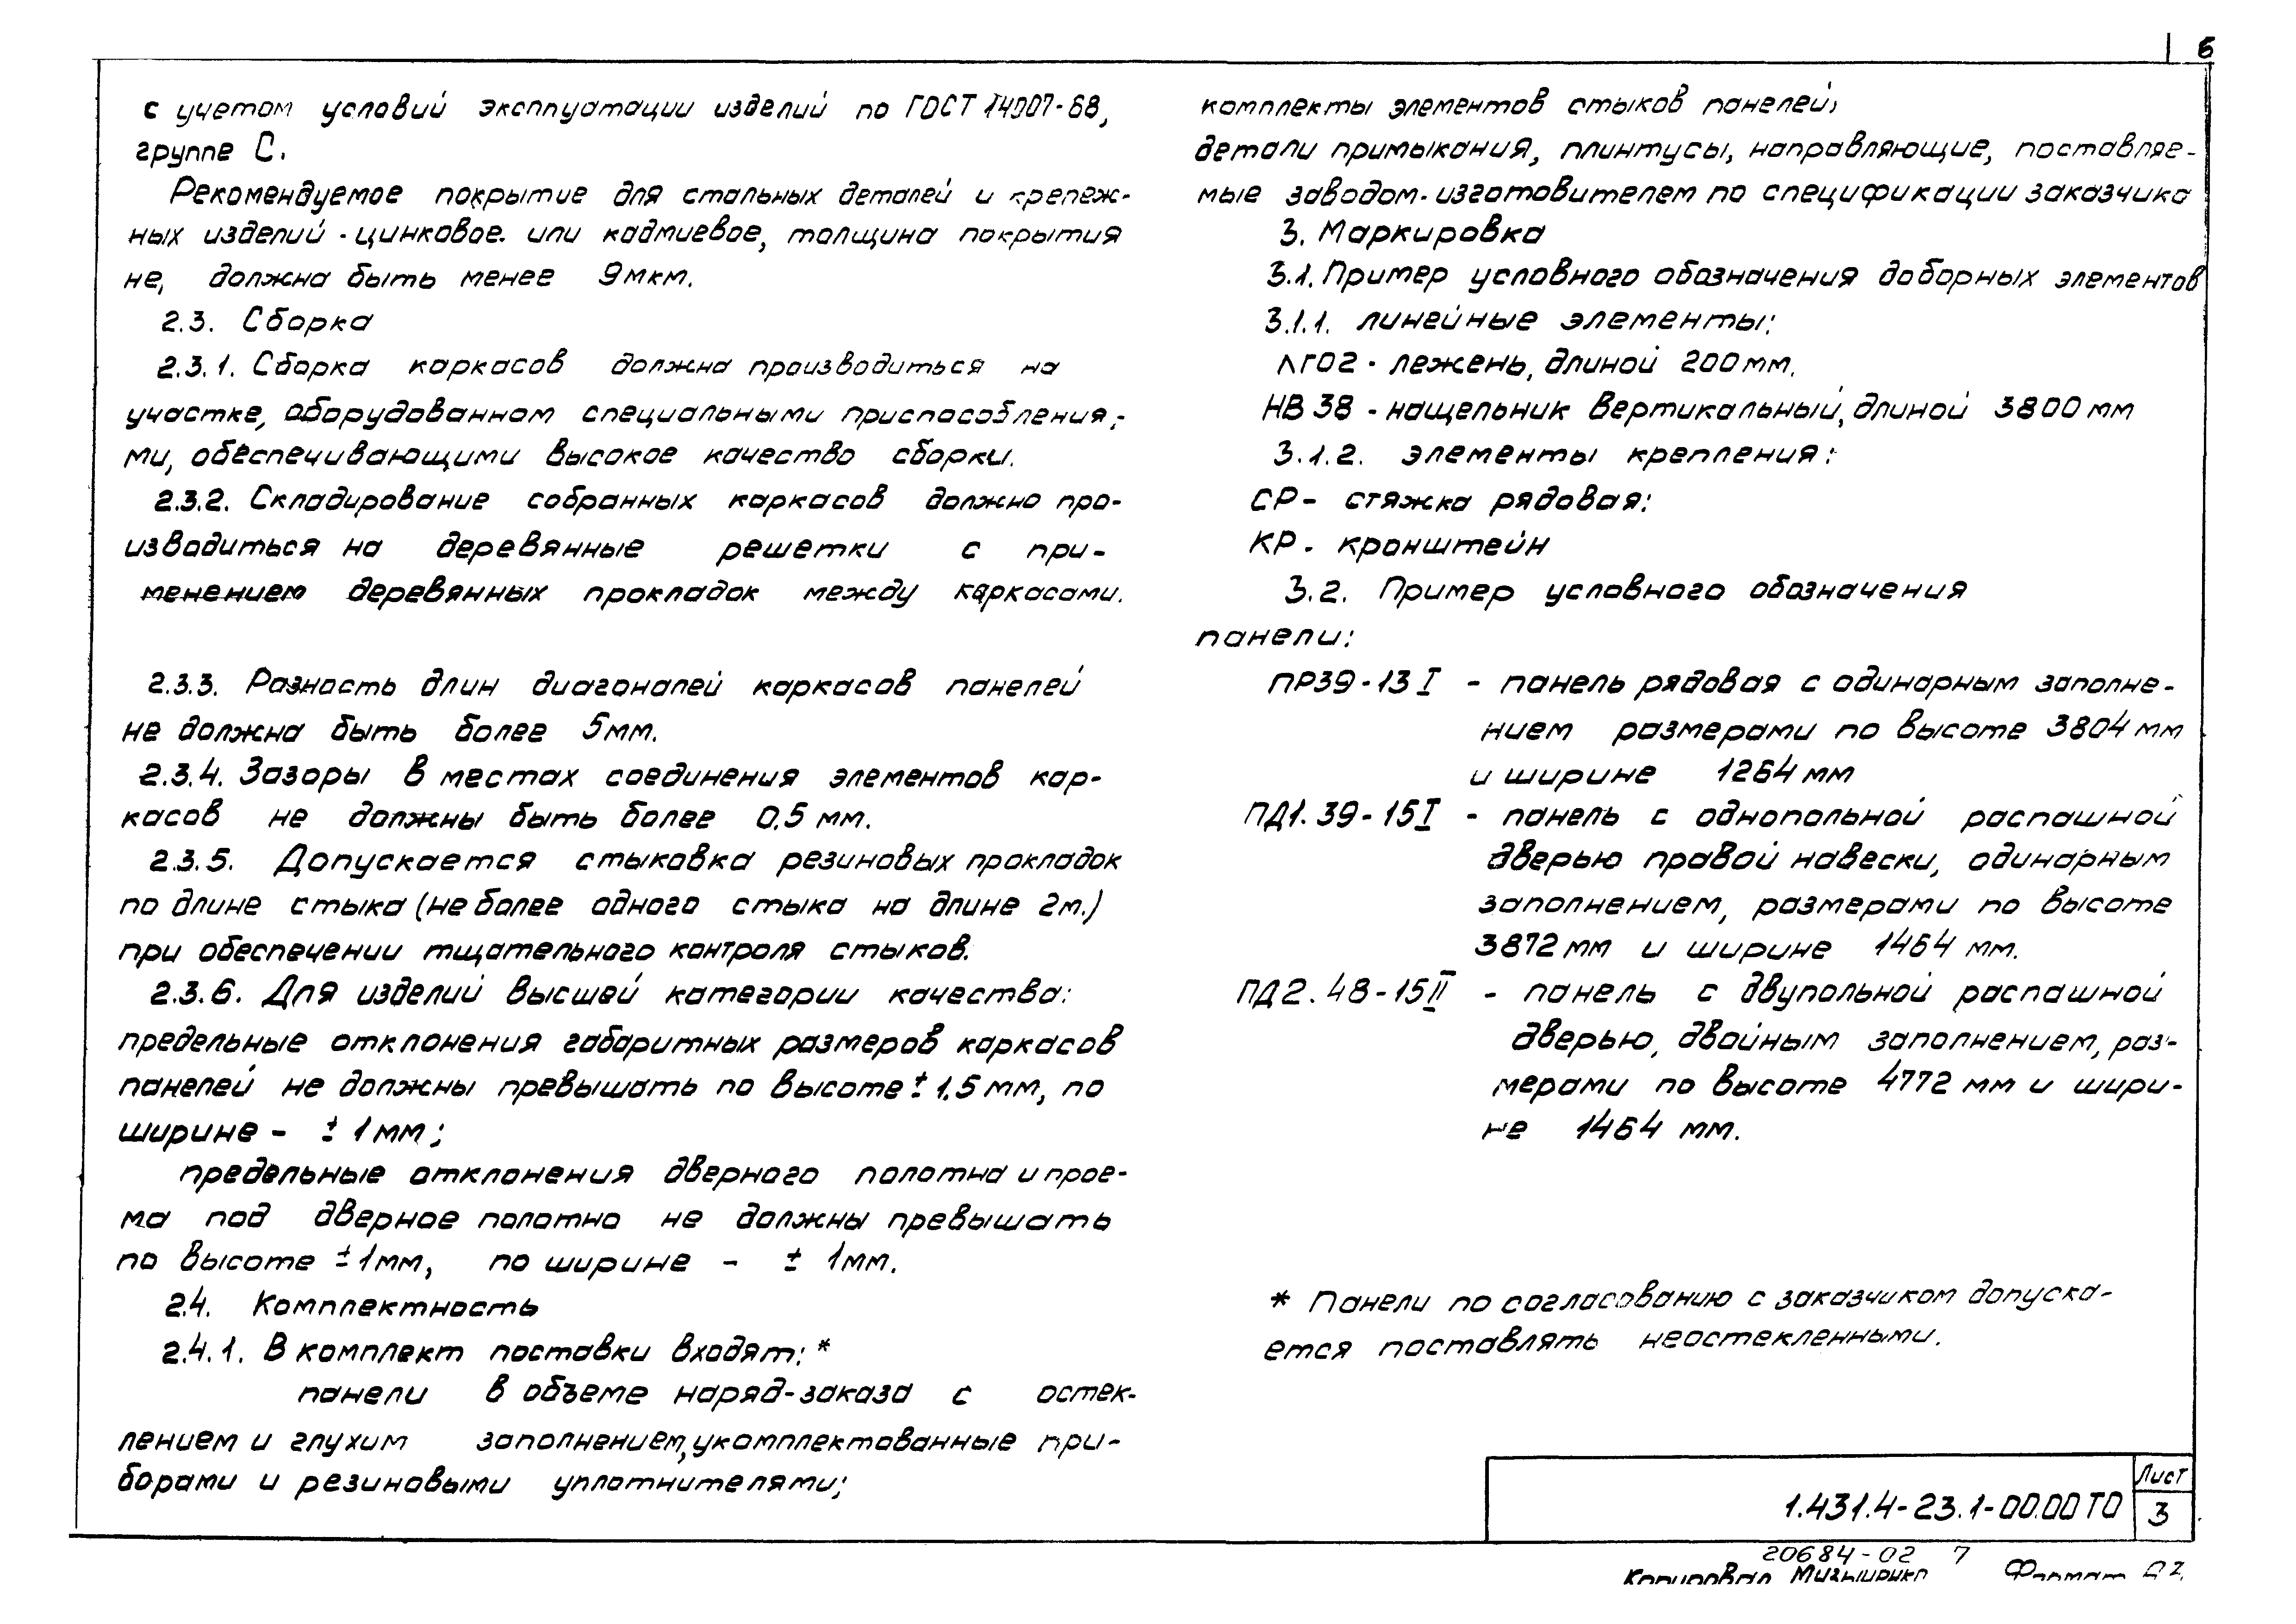 6
с учетом условий эксплуатации изделий по ГОСТ 14007-68,
группе С.
Рекомендуемое покрытие для стальных деталей и крепеж-
ных изделий - цинковое. или кадмиевое, толщина покрытия
не, должна быть менее 9мкм.
2.3. Сборка
2.3.1. Сборка каркасов должна производиться на
участке, оборудованном специальными приспособления;-
ми, обеспечивающими высокое качество сборки.
2.3.2. Складирование собранных каркасов должно про-
изводиться на деревянные решетки с при-
менением деревянных прокладок между каркасами.
2.3.3. Разность длин диагоналей каркасов панелей
не должна быть более 5мм.
2.3.4. Зазоры в местах соединения элементов кар-
касов не должны быть более 0,5 мм.
2.3.5. Допускается стыковка резиновых прокладок
по длине стыка (не более одного стыка на длине 2м.)
при обеспечении тщательного контроля стыков.
2.3.6. Для изделий высшей категории качества:
предельные отклонения габаритных размеров каркасов
панелей не должны превышать по высоте ± 1,5 мм, по
ширине - ± 1мм;
предельные отклонения дверного полотна и прое-
ма под дверное полотно не должны превышать
по высоте ±1мм, по ширине - ± 1мм.
2.4. Комплектность
2.4.1. В комплект поставки входят: *
панели в объеме наряд-заказа с остек-
лением и глухим заполнением, укомплектованные при-
борами и резиновыми уплотнителями;
комплекты элементов стыков панелей;
детали примыкания, плинтусы, направляющие, поставляе-
мые заводом-изготовителем по спецификации заказчика
3. Маркировка
3.1. Пример условного обозначения доборных элементов
3.1.1. линейные элементы:
ЛГ02 - лежень, длиной 200мм.
НВ 38 - нащельник вертикальный, длиной 3800 мм
3.1.2. элементы крепления:
СР - стяжка рядовая:
КР - кронштейн
3.2. Пример условного обозначения
панели:
ПР39-13 I - панель рядовая с одинарным заполне-
нием размерами по высоте 3804 мм
и ширине 1264 мм
ПД1. 39-15I - панель с однопольной распашной
дверью правой навески, одинарным
заполнением, размерами по высоте
3872 мм и ширине 1464 мм.
ПД2. 48-15II - панель с двупольной распашной
дверью, двойным заполнением, раз-
мерами по высоте 4772 мм и шири-
не 1464 мм.
* Панели по согласованию с заказчиком допуска-
ется поставлять неостекленными.
1.431.4-23.1-00.00 ТО
Лист
3
20684-02 7
Копировал Формат